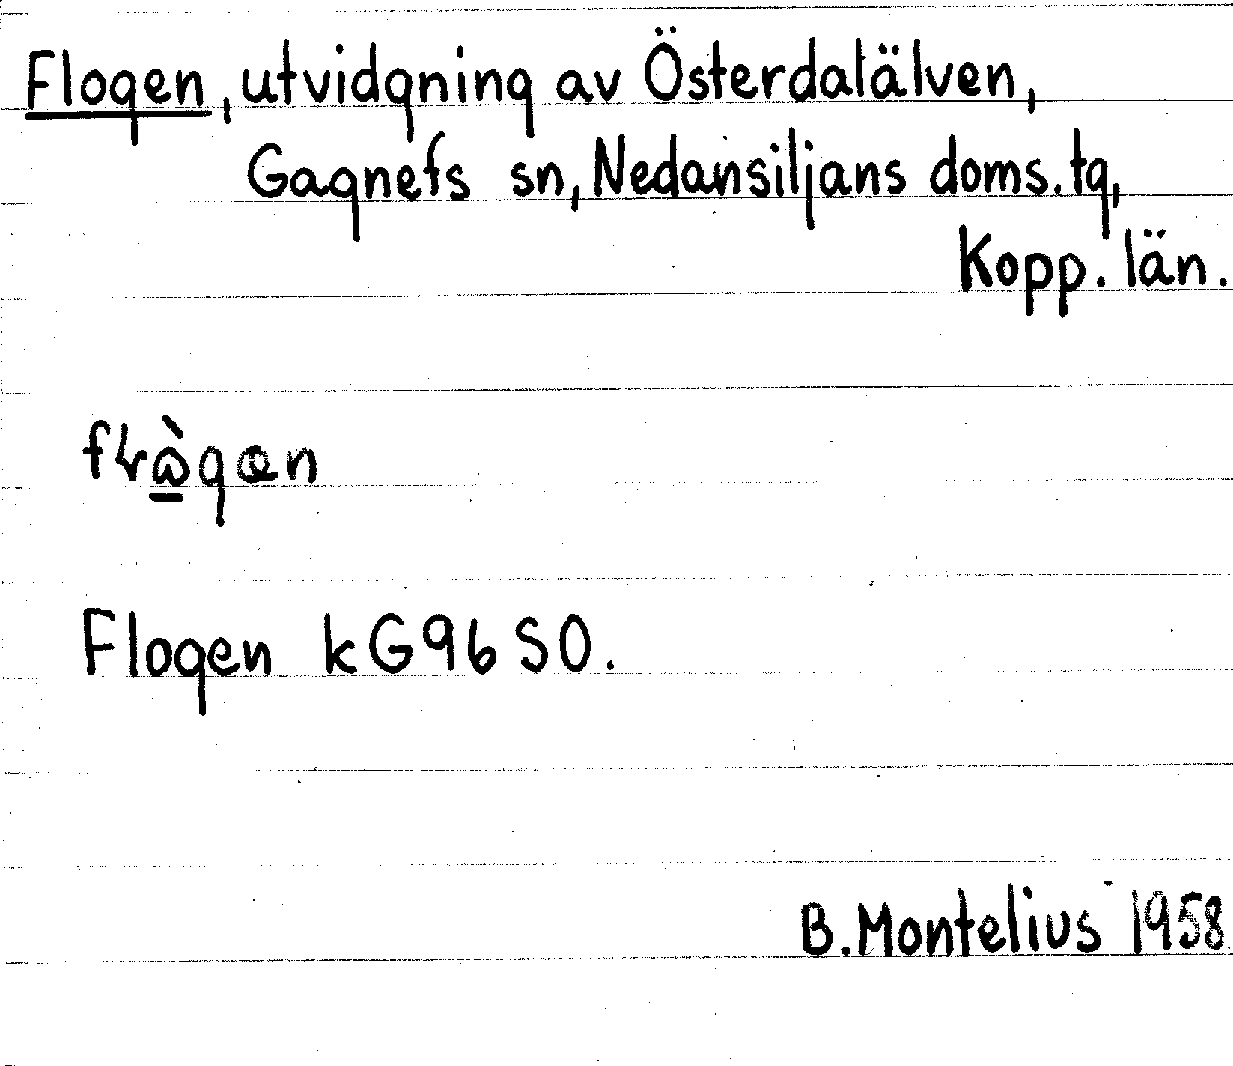 Flogen, utvidgning av Österdalälven,
Gagnefs sn, Nedansiljans doms. tg,
Kopp. län.
Flogen kG96SO.
B. Montelius 1958